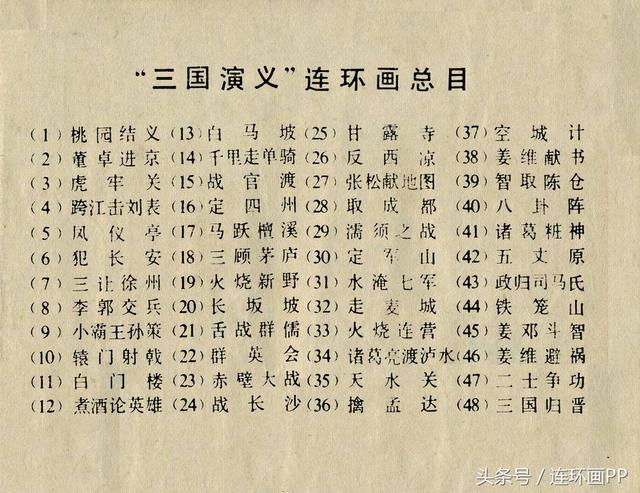 “三国演义”连环画总目
(1) 桃园结义 (13) 白马坡 (25) 甘露寺 (37) 空城计
(2) 董卓进京 (14) 千里走单骑 (26) 反西凉 (38) 姜维献书
(3) 虎牢关 (15) 战官渡 (27) 张松献地图 (39) 智取陈仓
(4) 跨江击刘表 (16) 定四州 (28) 取成都 (40) 八卦阵
(5) 凤仪亭 (17) 马跃檀溪 (29) 濡须之战 (41) 诸葛粧神
(6) 犯长安 (18) 三顾茅庐 (30) 定军山 (42) 五丈原
(7) 三让徐州 (19) 火烧新野 (31) 水淹七军 (43) 政归司马氏
(8) 李郭交兵 (20) 长坂坡 (32) 走麦城 (44) 铁笼山
(9) 小霸王孙策 (21) 舌战群儒 (33) 火烧连营 (45) 姜邓斗智
(10) 辕门射戟 (22) 群英会 (34) 诸葛亮渡泸水 (46) 姜维避祸
(11) 白门楼 (23) 赤壁大战 (35) 天水关 (47) 二士争功
(12) 煮酒论英雄 (24) 战长沙 (36) 擒孟达 (48) 三国归晋
头条号／连环画PP